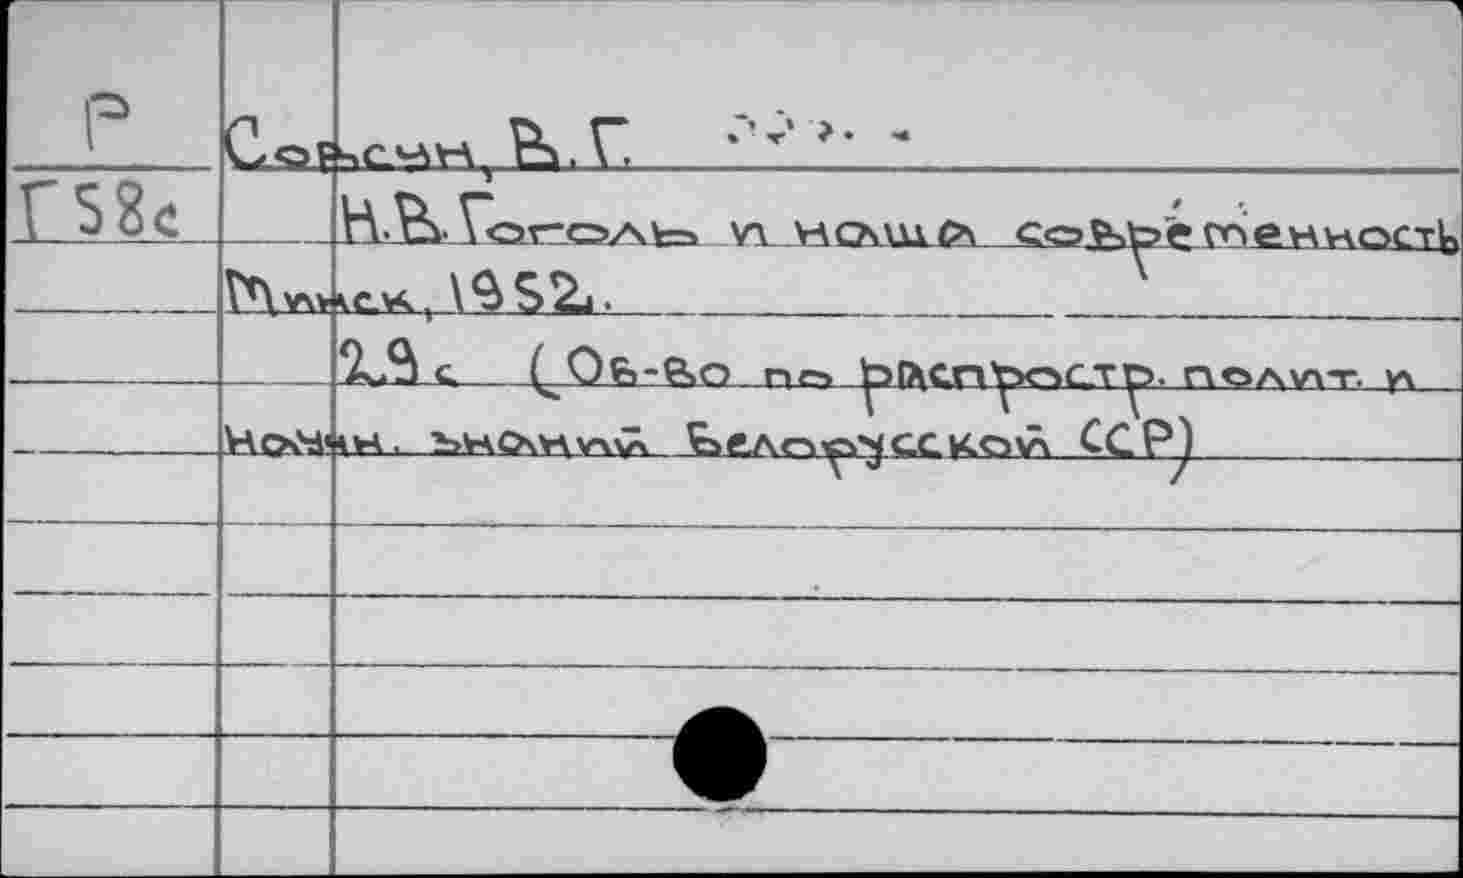 Р
Г58с
Н.В. Гоголь и наша современность
Минск, 1952.
29 с. (Об-во по распростр. полит. и
научн. знаний Белорусской ССР)